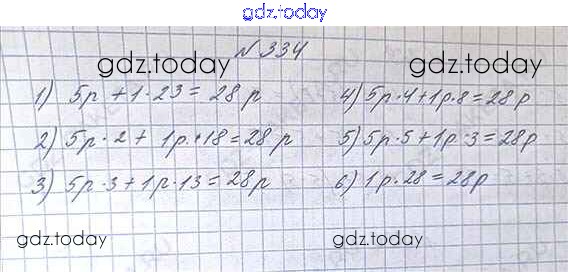 gdz.today
№334
gdz.today gdz.today
1) 5р + 1 · 23 = 28 р
2) 5р · 2 + 1р · 18 = 28 р
3) 5р · 3 + 1р · 13 = 28р
4) 5р · 4 + 1р · 8 = 28р
5) 5р · 5 + 1р · 3 = 28р
6) 1р · 28 = 28р
gdz.today gdz.today